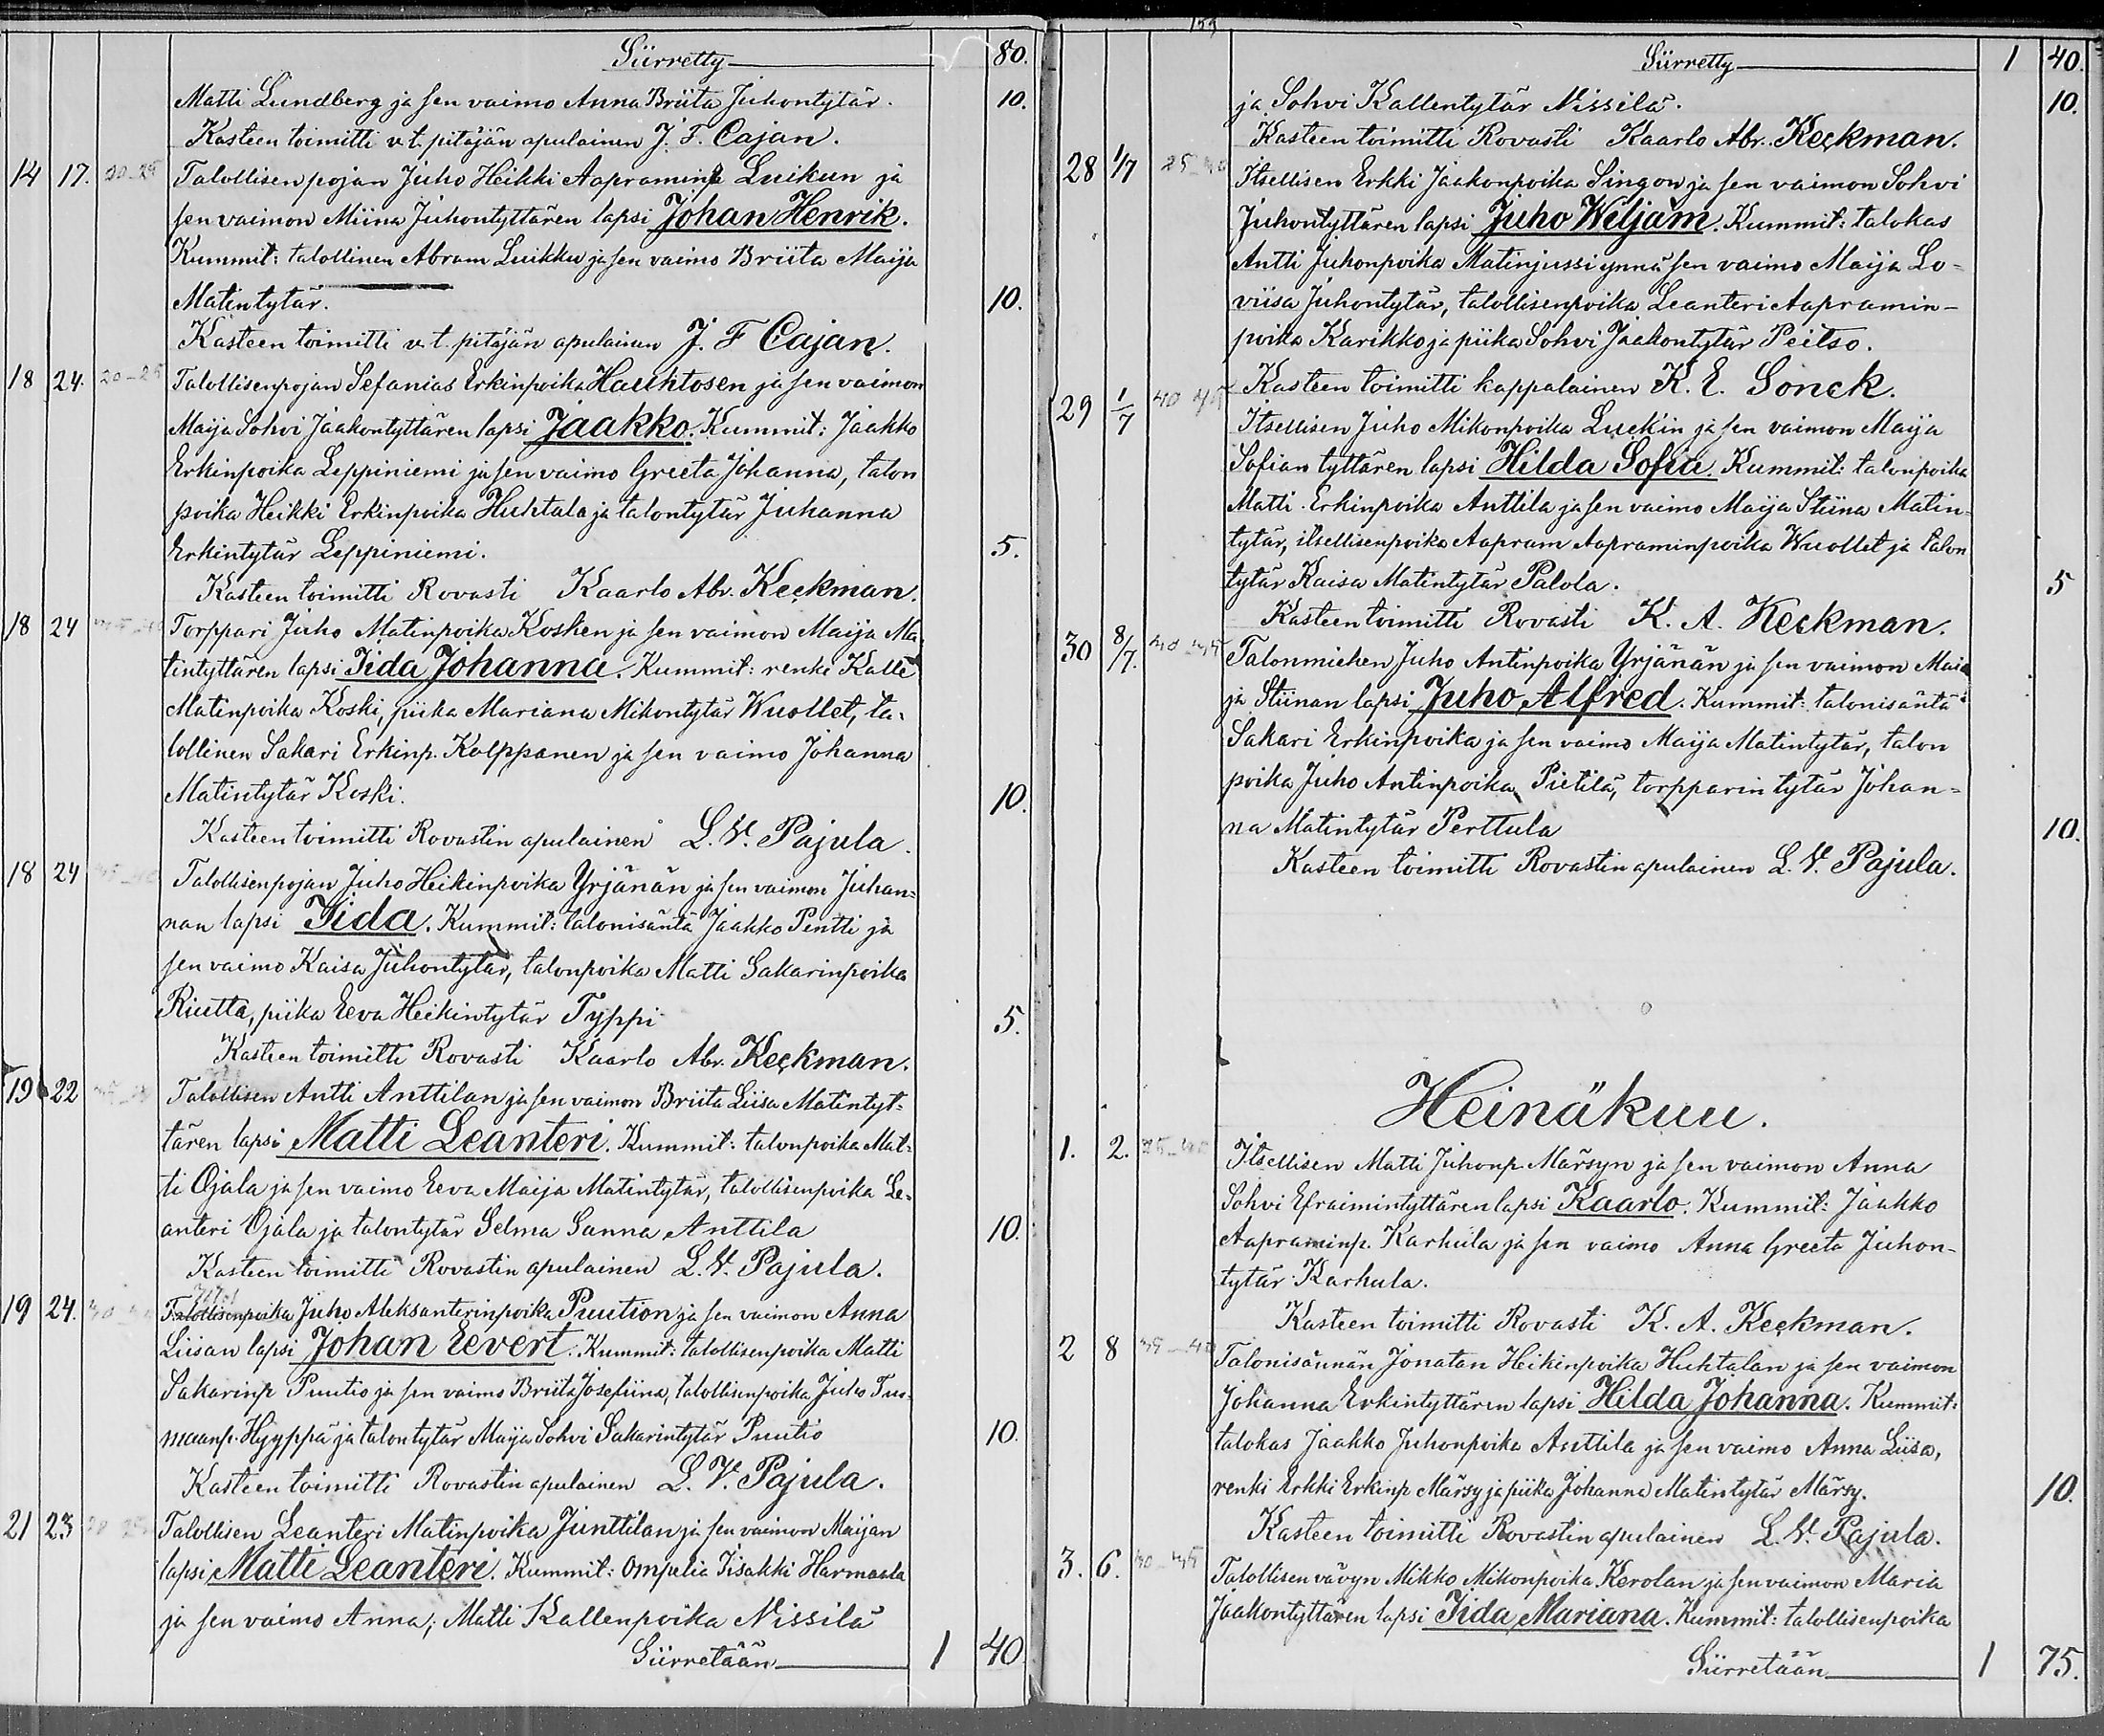 Siirretty 80.
Matti Lundberg ja sen vaimo Anna Briita Juhontytär. 10.
Kasteen toimitti v.t. pitäjän apulainen J. F. Cajan.
14 17. 20-25 Talollisen pojan Juho Heikki Aapramin Luikun ja
sen vaimon Miina Juhontyttären lapsi Johan Henrik.
Kummit: talollinen Abram Luikku ja sen vaimo Briita Maija
Matintytär. 10.
Kasteen toimitti v.t. pitäjän apulainen J. F Cajan.
18 24. 20-25 Talollisenpojan Sefanias Erkinpoika Hauhtosen ja sen vaimon
Maija Sohvi Jaakontyttären lapsi Jaakko. Kummit: Jaakko
Erkinpoika Leppiniemi ja sen vaimo Greeta Johanna, talon
poika Heikki Erkinpoika Huhtala ja talontytär Juhanna
Erkintytär Leppiniemi. 5.
Kasteen toimitti Rovasti Kaarlo Abr. Keckman.
18 24 Torppari Juho Matinpoika Kosken ja sen vaimon Maija Ma-
tintyttären lapsi Iida Johanna. Kummit: renki Kalle
Matinpoika Koski, piika Mariana Mikontytär Wuollet, ta-
lollinen Sakari Erkinp. Kolppanen ja sen vaimo Johanna
Matintytär Koski. 10.
Kasteen toimitti Rovastin apulainen L. V. Pajula.
18 24 Talollisenpojan Juho Heikinpoika Yrjänän ja sen vaimon Juhan-
nan lapsi Iida. Kummit: talonisäntä Jaakko Pentti ja
sen vaimo Kaisa Juhontytär, talonpoika Matti Sakarinpoika
Riutta, piika Eeva Heikintytär Typpi 5.
Kasteen toimitti Rovasti Kaarlo Abr. Keckman.
19 22 Talollisen Antti Anttilan ja sen vaimon Briita Liisa Matintyt-
tären lapsi Matti Leanteri. Kummit: talonpoika Mat-
ti Ojala ja sen vaimo Eeva Maija Matintytär, talollisenpoika Le-
anteri Ojala ja talontytär Selma Sanna Anttila 10.
Kasteen toimitti Rovastin apulainen L. V. Pajula.
19 24. Talollisenpoika Juho Aleksanterinpoika Puution ja sen vaimon Anna
Liisan lapsi Johan Eevert. Kummit: talollisenpoika Matti
Sakarinp Puutio ja sen vaimo Briita Josefiina, talollisenpoika Juho Tuo-
maanp. Hyyppä ja talontytär Maija Sohvi Sakarintytär Puutio 10.
Kasteen toimitti Rovastin apulainen L. V. Pajula.
21 23 Talollisen Leanteri Matinpoika Junttilan ja sen vaimon Maijan
lapsi Matti Leanteri. Kummit: Ompelia Iisakki Harmaala
ja sen vaimo Anna; Matti Kallenpoika Nissilä
Siirretään 1 40.
Siirretty 1 40.
ja Sohvi Kallentytär Nissilä. 10.
Kasteen toimitti Rovasti Kaarlo Abr. Keckman.
28 1/7 Itsellisen Erkki Jaakonpoika Singon ja sen vaimon Sohvi
Juhontyttären lapsi Juho Wiljam. Kummit: talokas
Antti Juhonpoika Matinjussi ynnä sen vaimo Maija Lo-
viisa Juhontytär, talollisenpoika Leanteri Aapramin-
poika Karikko ja piika Sohvi Jaakontytär Peitso.
Kasteen toimitti kappalainen K. E. Sonck.
29 1/7 Itsellisen Juho Mikonpoika Luckin ja sen vaimon Maija
Sofian tyttären lapsi Hilda Sofia. Kummit: talonpoika
Matti Erkinpoika Anttila ja sen vaimo Maija Stiina Matin-
tytär, itsellisenpoika Aapram Aapraminpoika Wuollet ja talon
tytär Kaisa Matintytär Palola. 5
Kasteen toimitti Rovasti K. A. Keckman.
30 8/7. Talonmiehen Juho Antinpoika Yrjänän ja sen vaimon Mai
ja Stiinan lapsi Juho Alfred. Kummit: talonisäntä
Sakari Erkinpoika ja sen vaimo Maija Matintytär, talon
poika Juho Antinpoika Pietilä, torpparin tytär Johan-
na Matintytär Perttula 10.
Kasteen toimitti Rovastin apulainen L. V. Pajula.
Heinäkuu.
1. 2. Itsellisen Matti Juhonp. Märsyn ja sen vaimon Anna
Sohvi Efraimintyttären lapsi Kaarlo. Kummit: Jaakko
Aapraminp. Karhula ja sen vaimo Anna Greeta Juhon-
tytär Karhula.
Kasteen toimitti Rovasti K. A. Keckman.
2 8 35-40 Talonisännän Jonatan Heikinpoika Huhtalan ja sen vaimon
Johanna Erkintyttären lapsi Hilda Johanna. Kummit:
talokas Jaakko Juhonpoika Anttila ja sen vaimo Anna Liisa,
renki Erkki Erkinp Märsy ja piika Johanna Matintytär Märsy. 10.
Kasteen toimitti Rovastin apulainen L. V. Pajula.
3. 6. Talollisen vävyn Mikko Mikonpoika Kerolan ja sen vaimon Maria
Jaakontyttären lapsi Iida Mariana. Kummit: talollisenpoika
Siirretään 1 75.